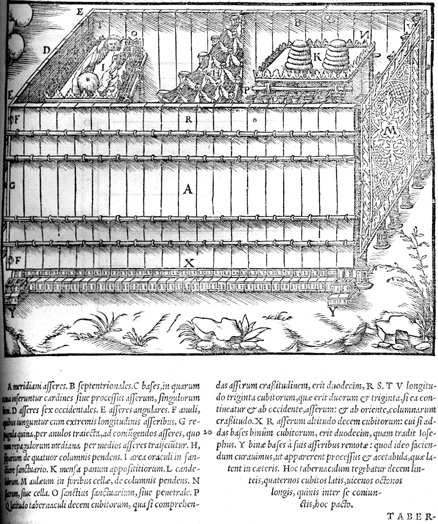 E
D
I
O
B
N
K
E
P
F
R
M
G
A
F
X
Y
Y
A meridiani asseres. B septentrionales. C bases, in quarum
inseruntur cardines siue processus asserum, singulorum
D asseres sex occidentales. E asseres angulares. F anuli,
quibus iunguntur cum extremis longitudinis asseribus. G re-
quina, per anulos traiecta, ad contingendos asseres, quo
rum repagulorum mediana per medios asseres traijcitur. H,
de quatuor columnis pendens. I arca oraculi in san-
sanctuario. K mensa panum appositiorum. L cande-
M aulæum in foribus cellæ, de columnis pendens. N
siue cella. O sanctius sanctuarium, siue penetrale. P
Q latitudo tabernaculi decem cubitorum, quasi comprehen-
20
das asserum crassitudinem, erit duodecim, R S. T V longitu-
do triginta cubitorum, quæ erit duorum & triginta, si ea con-
tineatur & ab occidente, asserum: & ab oriente, columnarum
crassitudo. X R asserum altitudo decem cubitorum: cui si ad-
das bases binûm cubitorum, erit duodecim, quam tradit Iose-
phus. Y binæ bases à suis asseribus remotæ: quod ideo facien-
dum curauimus, ut apparerent processus & acetabula, quæ la-
tent in cæteris. Hoc tabernaculum tegebatur decem lin-
teis, quaternos cubitos latis, uicenos octonos
longis, quinis inter se coniun-
ctis, hoc pacto.
TABER-